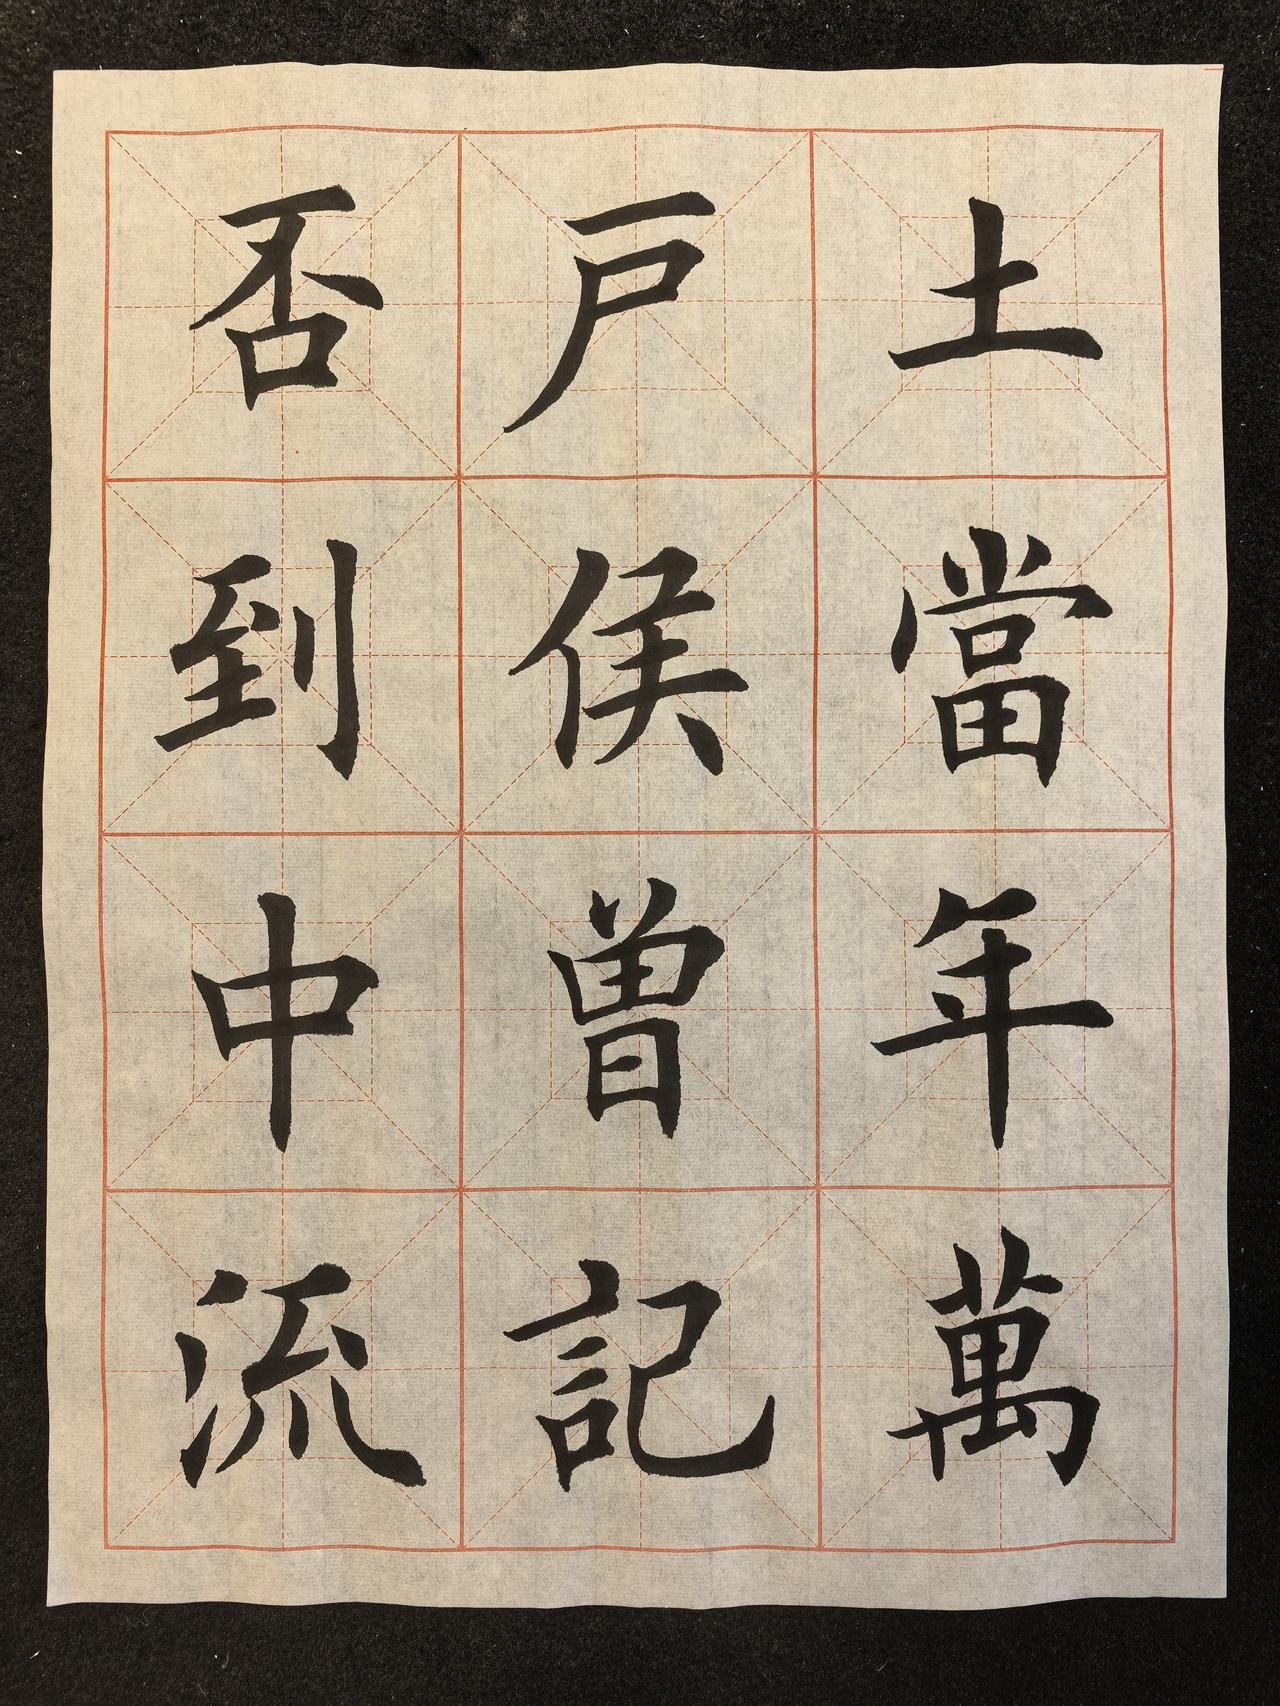 土當年萬
戸侯曽記
否到中流